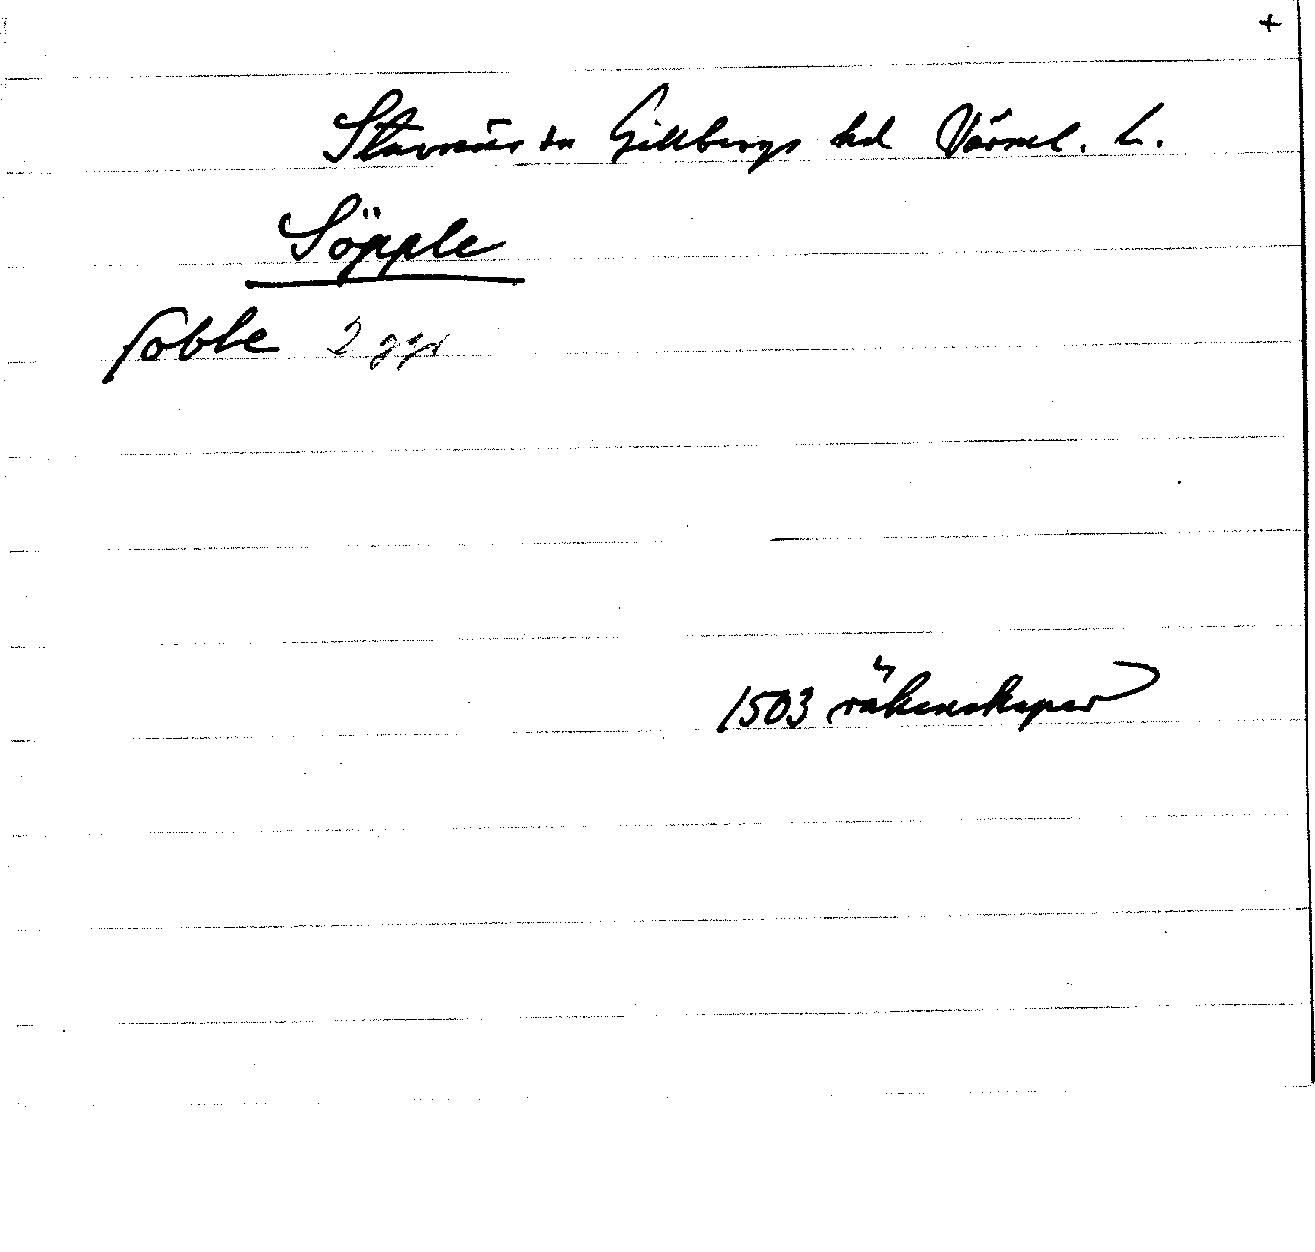 +
Stavnäs sn Gillbergs hd Värml. L.
Söpple
soble 2 ggr
1503 räkenskaper